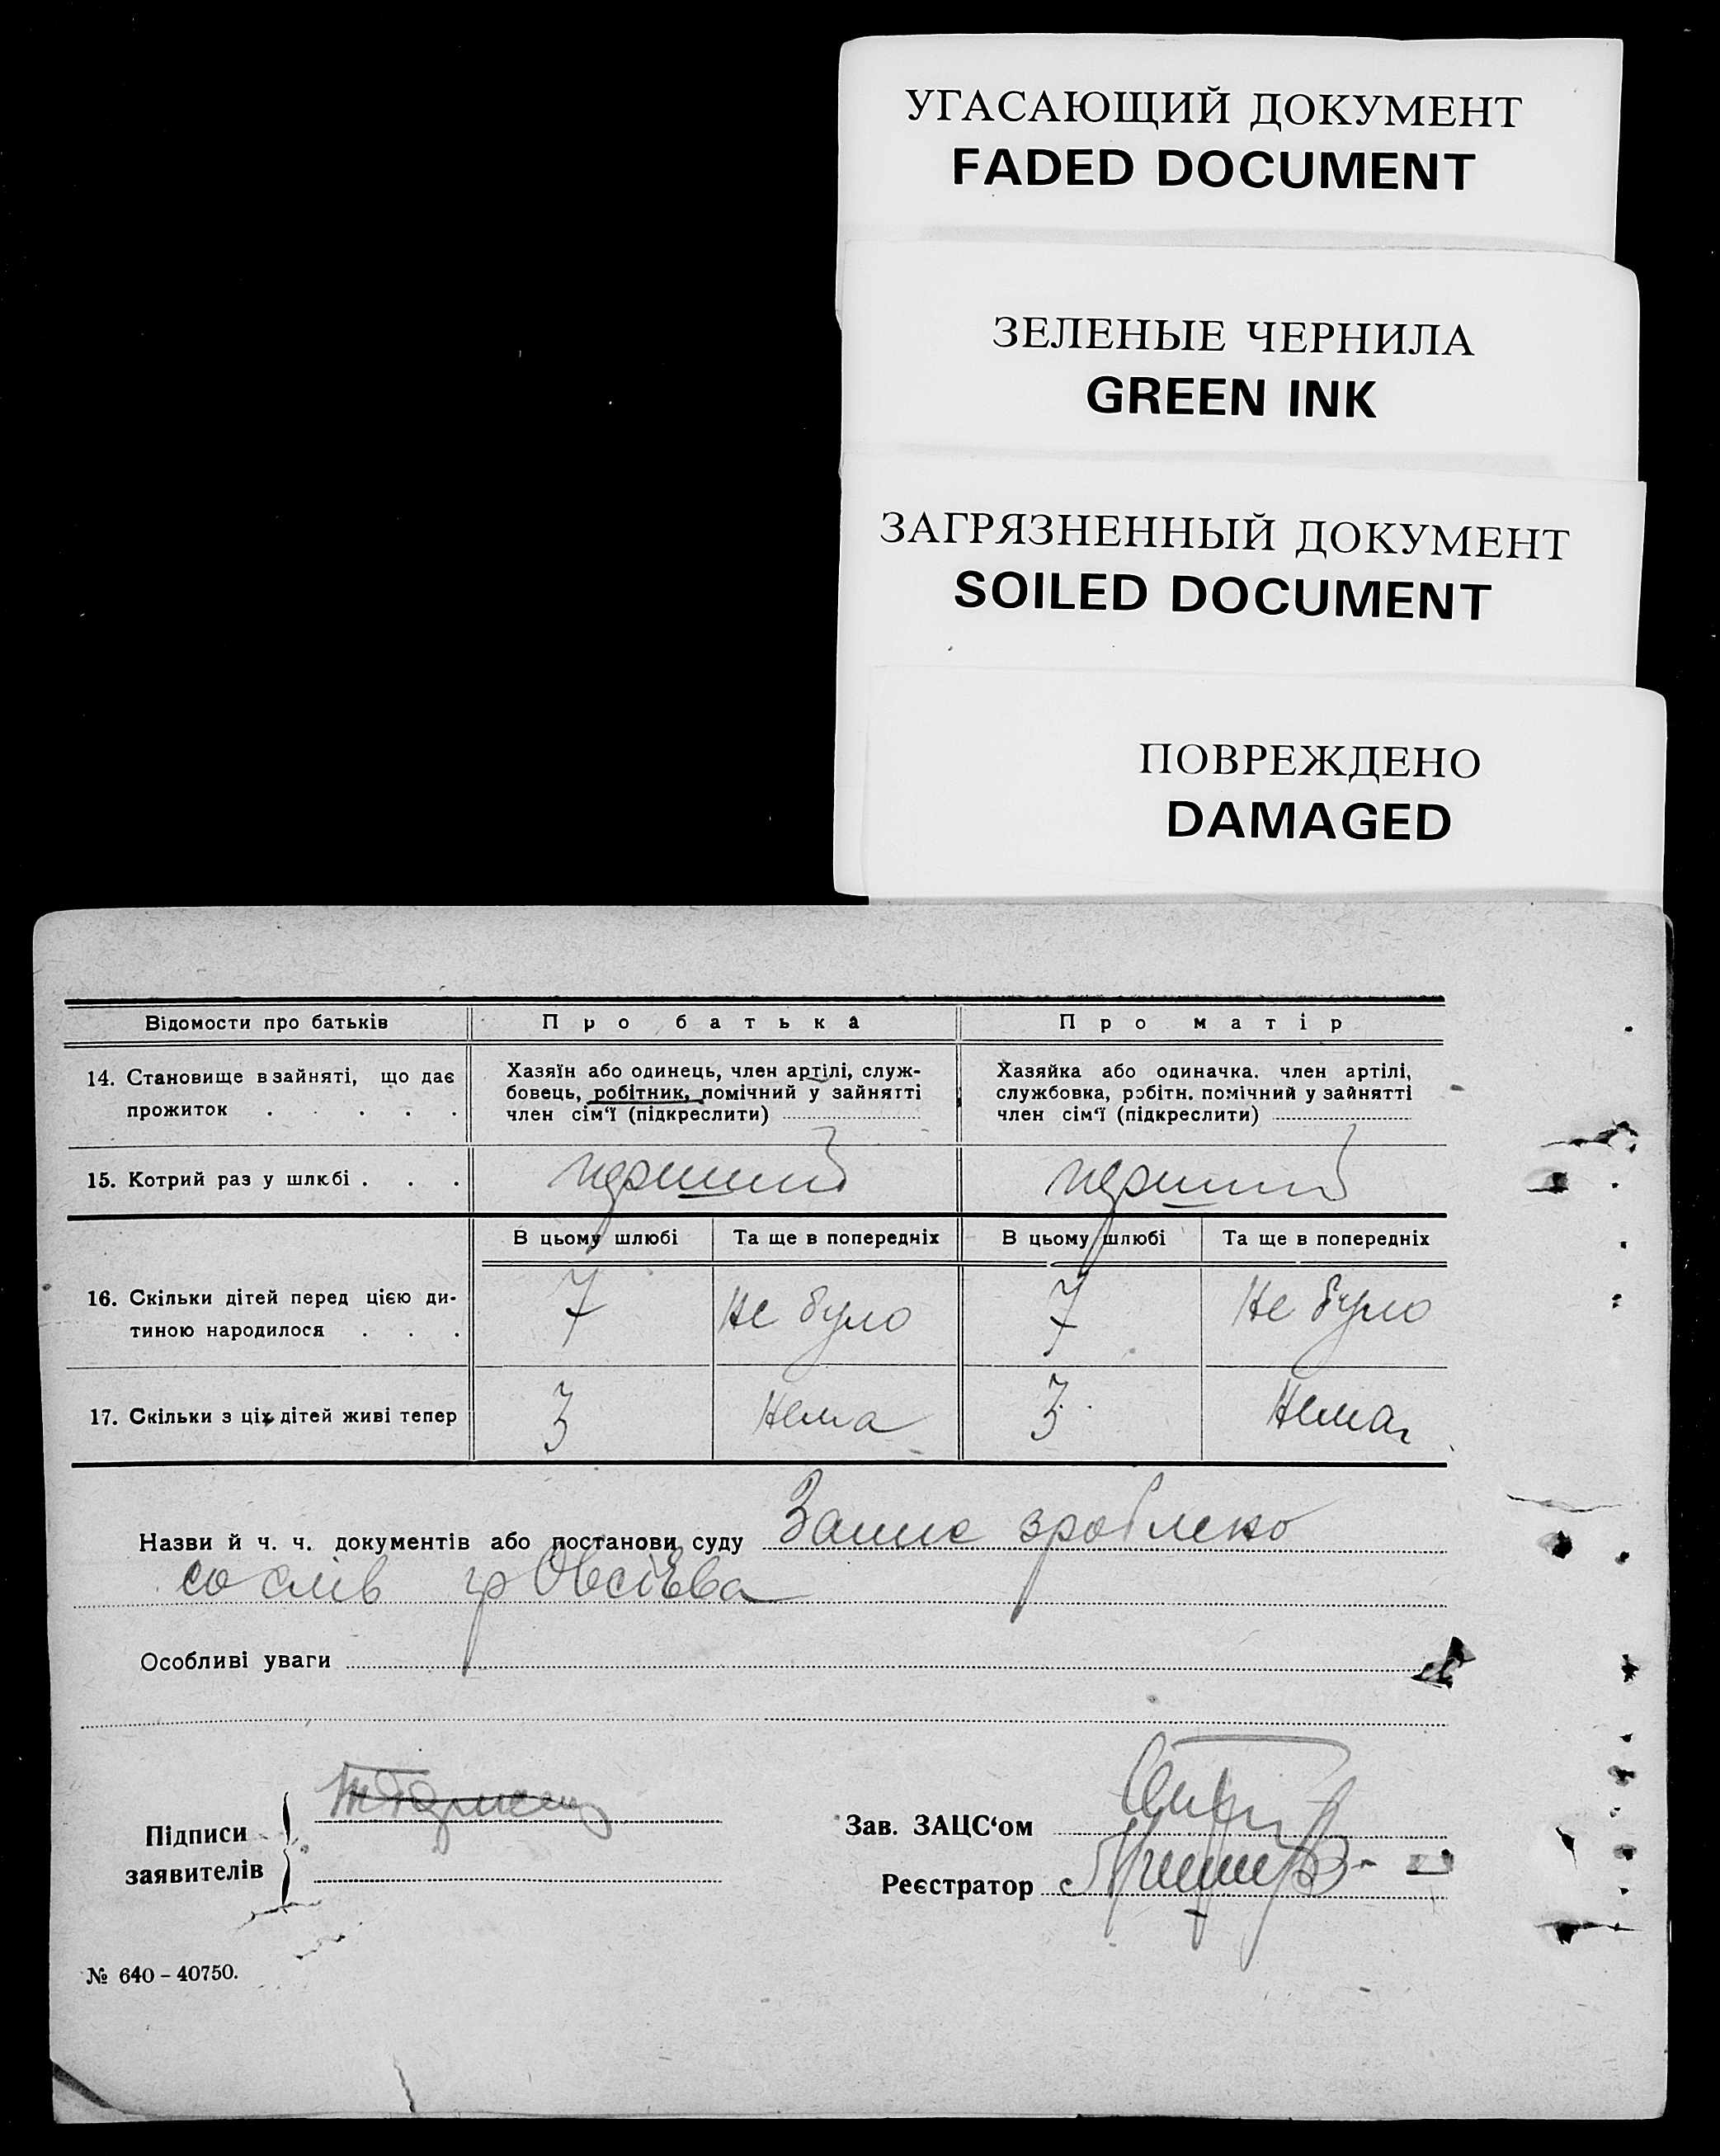 УГАСАЮЩИЙ ДОКУМЕНТ
FADED DOCUMENT
ЗЕЛЕНЫЕ ЧЕРНИЛА
GREEN INK
ЗАГРЯЗНЕННЫЙ ДОКУМЕНТ
SOILED DOCUMENT
ПОВРЕЖДЕНО
DAMAGED
Відомости про батьків
Про батька
Про матір
14. Становище в зайняті, що дає
прожиток . . . . .
Хазяїн або одинець, член артілі, служ-
бовець, робітник, помічний у зайнятті
член сім'ї (підкреслити)
Хазяйка або одиначка. член артілі,
службовка, робітн. помічний у зайнятті
член сім'ї (підкреслити)
15. Котрий раз у шлюбі . . .
перший
перший
В цьому шлюбі
Та ще в попередніх
В цьому шлюбі
Та ще в попередніх
16. Скільки дітей перед цією ди-
тиною народилося . . .
7
Не було
7
Не було
17. Скільки з ціх дітей живі тепер
3
Нема
3
Нема
Назви й ч. ч. документів або постанови суду Запис зроблено
со слів гр Овсієва
Особливі уваги
Підписи
заявителів
Зав. ЗАЦС'ом
Реєстратор
№ 640-40750.